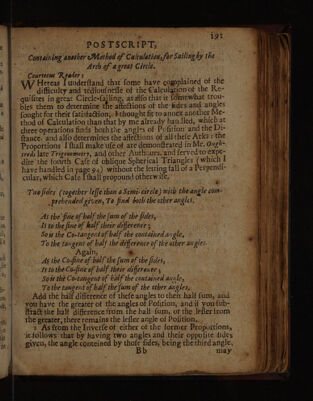 191
POSTSCRIPT,
Containing another Method of Calculation, for Sailing by the
Arch of a great Circle.
Courteous Reader;
WHereas I understand that some have complained of the
difficulty and tediousnesse of the Calculation of the Re-
quisites in great Circle-sailing, as also that it somewhat trou-
bles them to determine the affections of the sides and angles
sought for their satisfaction, I thought fit to annex another Me-
thod of Calculation than that by me already handled, which at
three operations finds both the angles of Position and the Di-
stance, and also determines the affections of all these Arks: the
Proportions I shall make use of are demonstrated in Mr. Ough-
treds late Trigonometry, and other Authours, and served to expe-
dite the fourth Case of oblique Spherical Triangles (which I
have handled in page 94) without the letting fall of a Perpendi-
cular, which Case I shall propound otherwise,
Two sides (together lesse than a Semi-circle) with the angle com-
prehended given, To find both the other angles,
As the sine of half the sum of the sides,
Is to the sine of half their difference;
So is the Co-tangent of half the contained angle,
To the tangent of half the difference of the other angles.
Again,
As the Co-sine of half the sum of the sides,
Is to the Co-sine of half their difference;
So is the Co-tangent of half the contained angle,
To the tangent of half the sum of the other angles.
Add the half difference of these angles to their half sum, and
you have the greater of the angles of Position, and if you sub-
stract the half difference from the half sum, or the lesser from
the greater, there remains the lesser angle of Position.
2 As from the Inverse of either of the former Proportions,
it follows that by having two angles and their opposite sides
given, the angle conteined by those sides, being the third angle,
Bb may